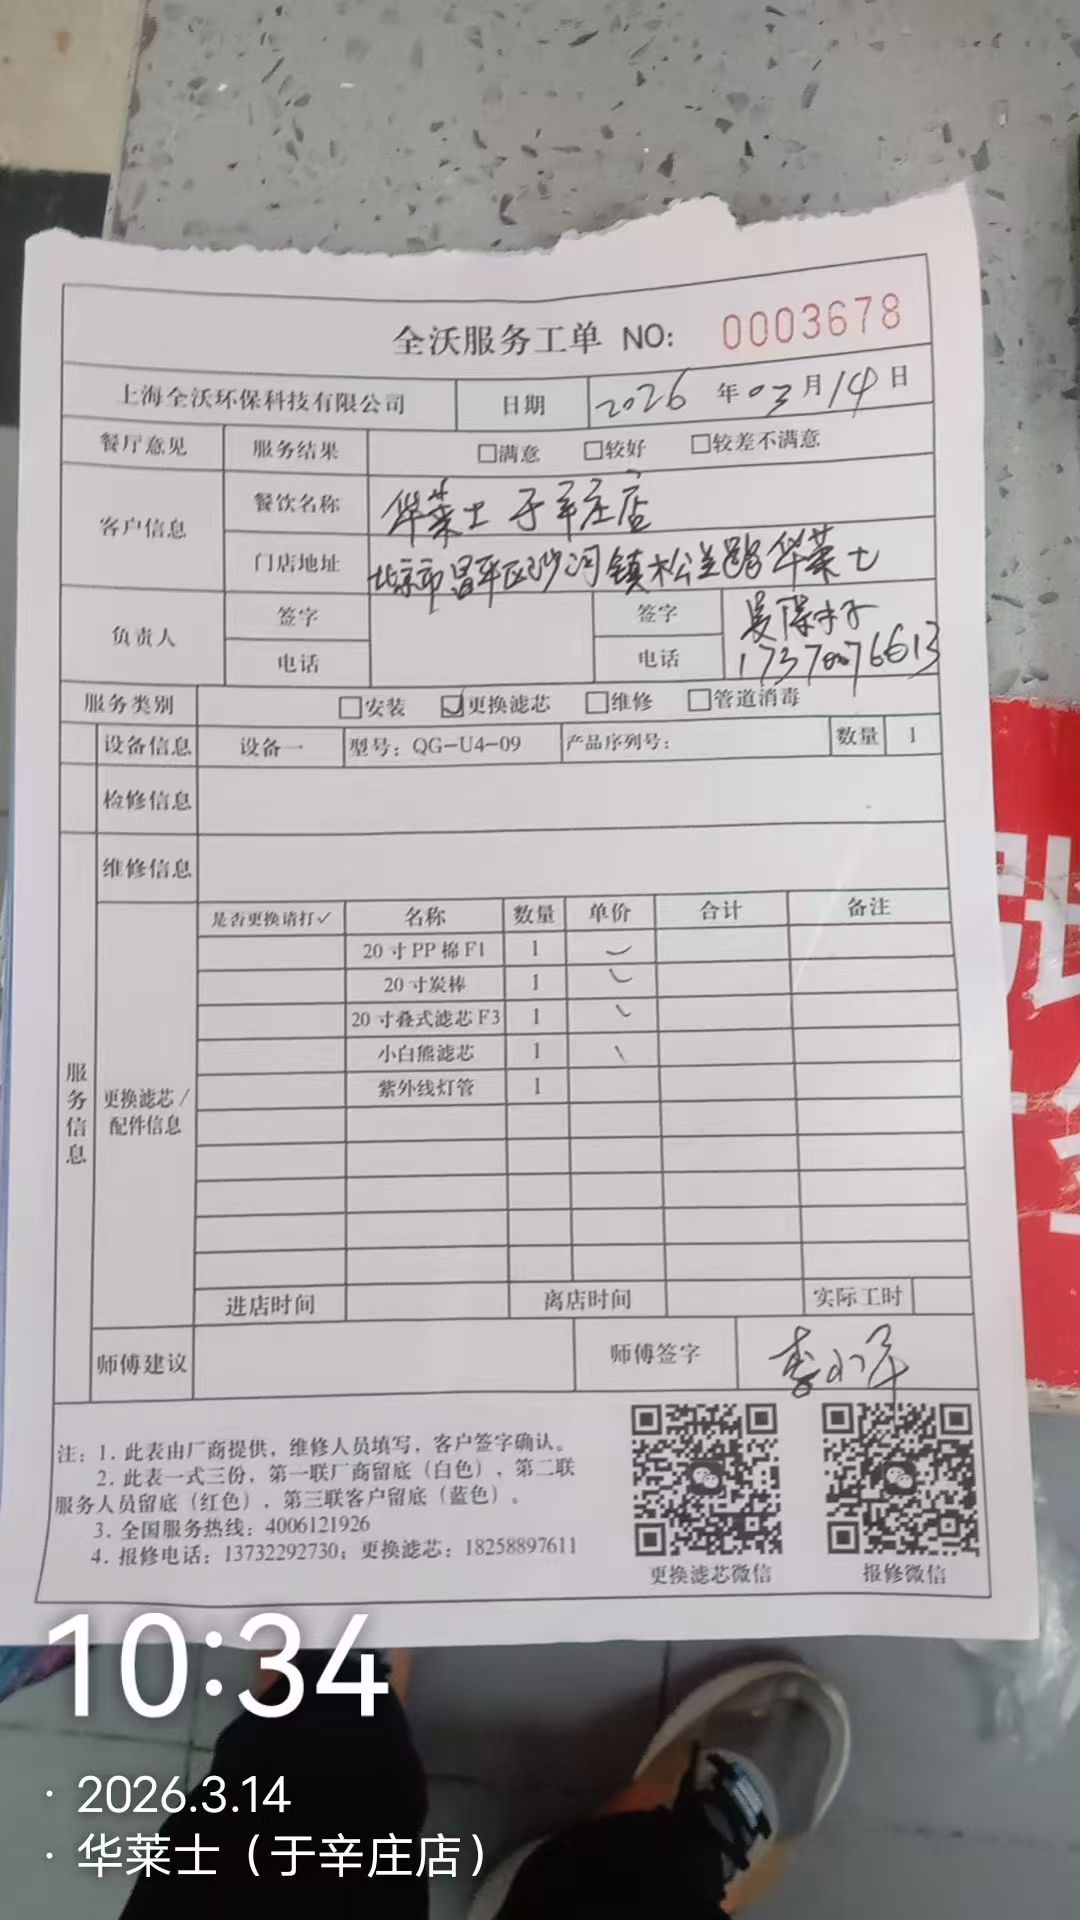 全沃服务工单 NO: 0003678
上海全沃环保科技有限公司 日期 2026 年 03 月 14 日
餐厅意见 服务结果 □满意 □较好 □较差不满意
客户信息 餐饮名称 华莱士 于辛庄店
门店地址 北京市昌平区沙河镇松兰堡路华莱士
负责人 签字 签字
电话 电话
服务类别 □安装 ☑更换滤芯 □维修 □管道消毒
设备信息 设备一 型号：QG-U4-09 产品序列号： 数量 1
检修信息
维修信息
服务信息
更换滤芯/
配件信息
是否更换请打✓ 名称 数量 单价 合计 备注
20寸PP棉F1 1 ✓
20寸炭棒 1 ✓
20寸叠式滤芯F3 1 ✓
小白熊滤芯 1 ✓
紫外线灯管 1
进店时间 离店时间 实际工时
师傅建议 师傅签字
注：1. 此表由厂商提供，维修人员填写，客户签字确认。
2. 此表一式三份，第一联厂商留底（白色），第二联
服务人员留底（红色），第三联客户留底（蓝色）。
3. 全国服务热线：4006121926
4. 报修电话：13732292730；更换滤芯：18258897611
更换滤芯微信 报修微信
10:34
· 2026.3.14
· 华莱士（于辛庄店）